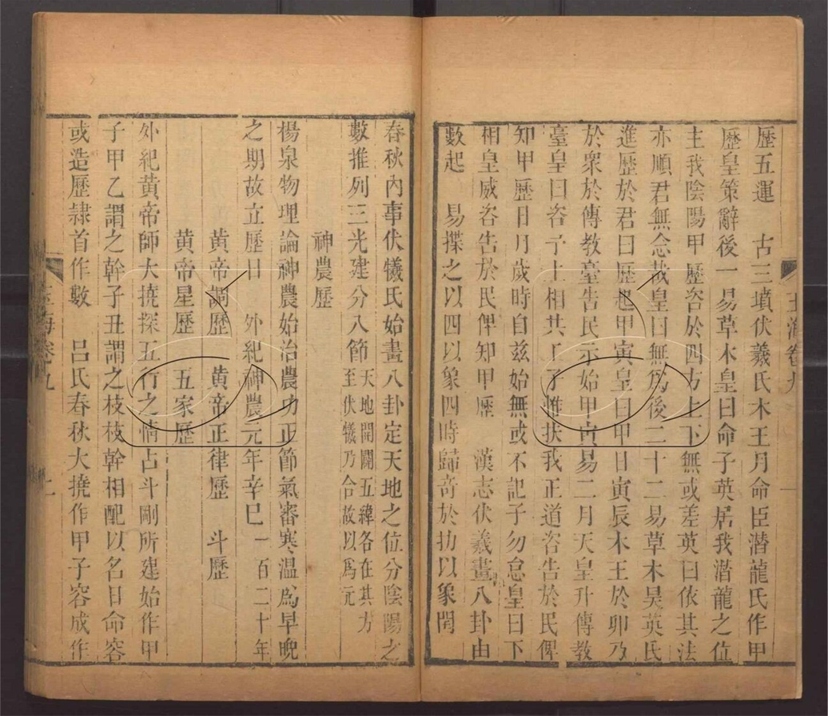 歷五運　古三墳伏羲氏木王月命臣潛龍氏作甲
歷皇策辭後一易草木皇曰命子英居我潛龍之位
主我陰陽甲歷咨於四方上下無或差英曰依其法
亦順君無念哉皇曰無爲後二十二易草木昊英氏
進歷於君曰歷起甲寅皇曰甲日寅辰木王於卯乃
於衆於傳教臺告民示始甲寅易二月天皇升傳教
臺皇曰咨予上相共工子惟扶我正道咨告於民俾
知甲歷日月歲時自茲始無或不記子勿怠皇曰下
相皇威咨告於民俾知甲歷　漢志伏羲畫八卦由
數起　易揲之以四以象四時歸奇於扐以象閏
玉海卷九
春秋內事伏犧氏始畫八卦定天地之位分陰陽之
數推列三光建分八節天地開闢五緯各在其方
至伏犧乃合故以爲元
神農歷
楊泉物理論神農始治農功正節氣審寒温爲早晚
之期故立歷日　外紀神農元年辛巳一百二十年
黃帝調歷　黃帝正律歷　斗歷
黃帝星歷　五家歷
外紀黃帝師大撓探五行之情占斗剛所建始作甲
子甲乙謂之幹子丑謂之枝枝幹相配以名日命容
或造歷隸首作數　呂氏春秋大撓作甲子容成作
玉海卷九